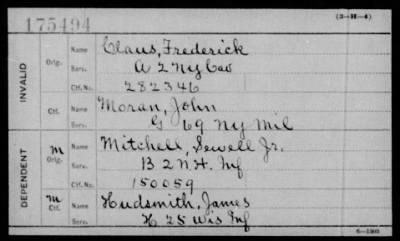 175494
(3-H-4)
INVALID
Orig.
Name Claus, Frederick
Serv. A 2 Ny Cav
Ctf. No. 282346
Ctf.
Name Moran, John
Serv. G 69 Ny Mil
DEPENDENT
M Orig.
Name Mitchell, Sewell Jr.
Serv. B 2 N.H. Inf
Ctf. No. 150059
M Ctf.
Name Hudsmith, James
Serv. H 25 Wis Inf